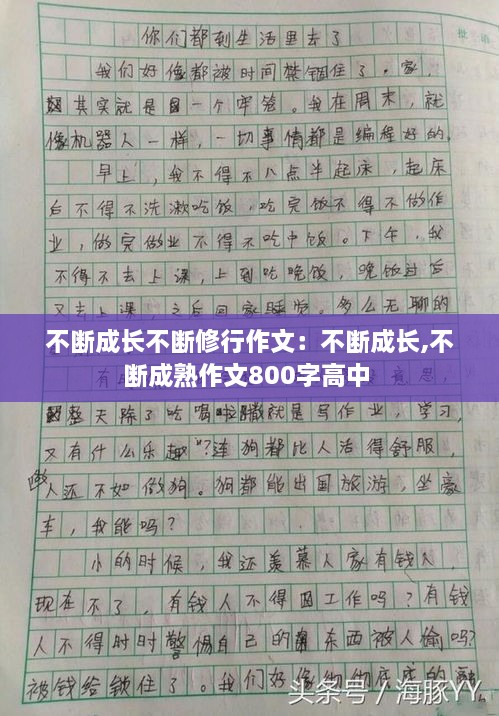 你们都到生活里去了
我们好像都被时间禁锢住了。家,
其实就是一个牢笼。我在周末,就
像机器人一样,一切事情都是编程好的。
早上,我不得不八点半起床,起床
后不得不洗漱吃饭,吃完饭不得不做作
业,做完做业不得不吃中饭。下午,我
不得不去上课,上到吃晚饭,晚饭过后
又去上课,之后回家睡觉。多么无聊的
不断成长不断修行作文:不断成长,不
断成熟作文800字高中
整天除了吃喝拉撒就是写作业,学习,
又有什么乐趣?连狗都比人活得舒服,
做人还不如做狗。狗都能出国旅游,坐豪
车,我能吗?
小的时候,我还羡慕人家有钱人,
现在不了,有钱人不得因工作吗?有钱
人不得时时警惕自己的东西被人偷吗?
被钱给锁住了。我们好像彻彻底底的
头条号/海豚YY